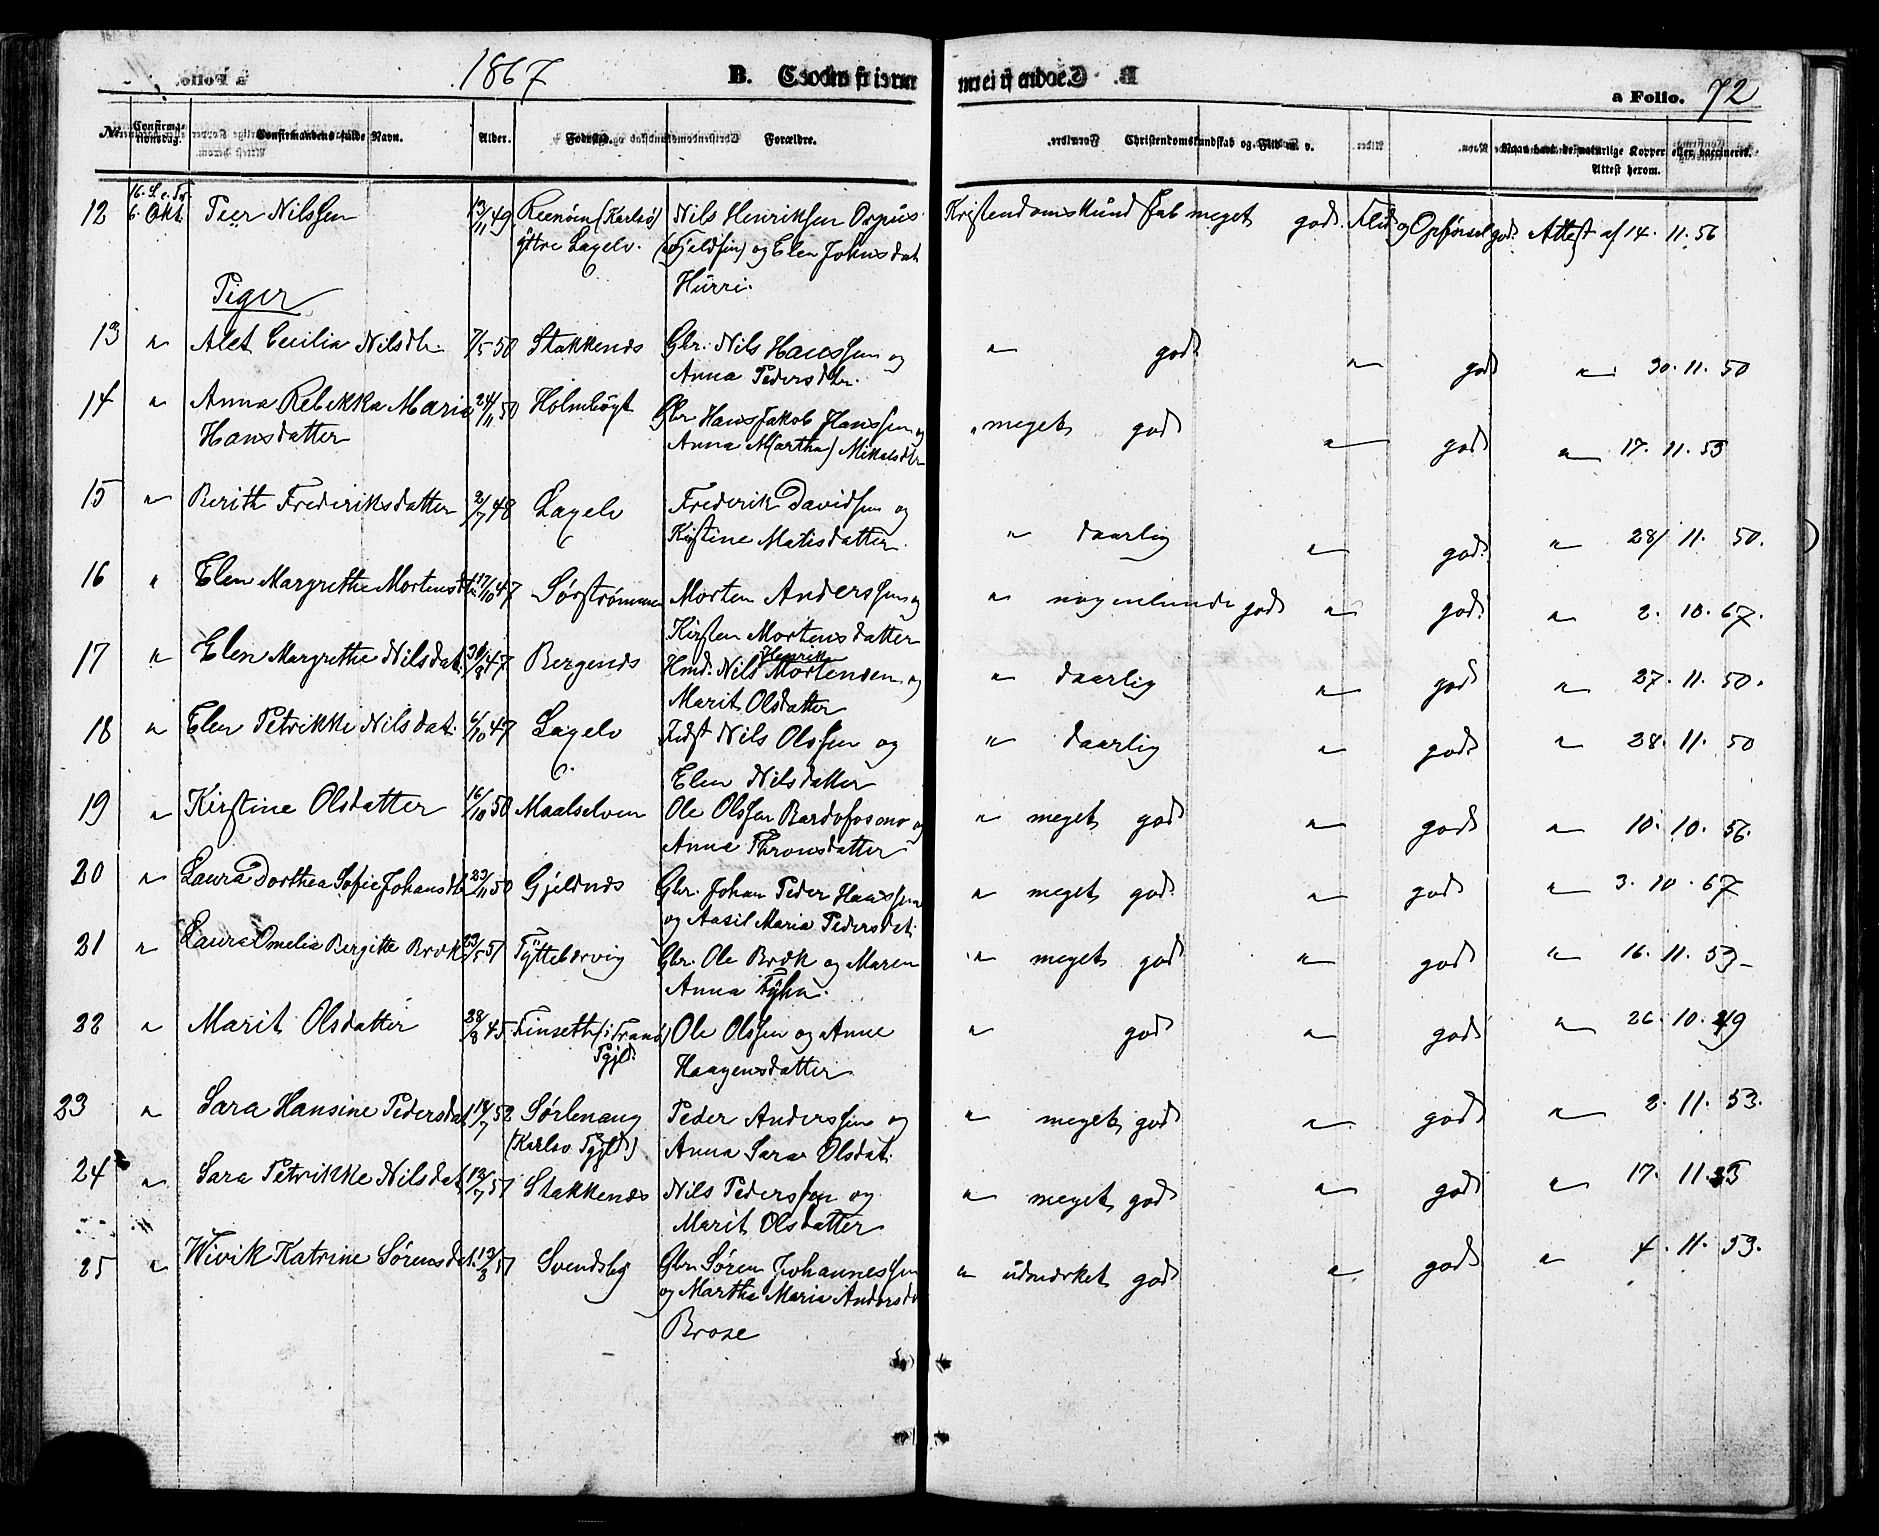 1867 B. Confirmerede a Folio. 72
No. Confirmationsdag. Confirmandens fulde Navn. Alder. Fødested. Forældre. Christendomskundskab og Flid m. v. Naar havt de naturlige Kopper eller vaccineret. Attest herom.
12 16. S. e. Tr. 6. Okt. Peer Nilssen 13/11 49 Reenøen (Karlsø) Nils Henrikssen Orpus Kristendomskundskab meget god. Flid og Opførsel god. Attest af 14. 11. 56
yttre Lagelv. (Fjeldfin) og Elen Johnsdat.
Hurri.
Piger
13 " Alet Cecilia Nilsdtr. 7/5 50 Stakkenes Gbr. Nils Hanssen og " god " god " 30. 11. 50
Anna Pedersdtr.
14 " Anna Rebekka Maria 24/11 50 Holmbøgt Gbr Hans Jakob Hanssen og " meget god " god " 17. 11. 53
Hansdatter Anna M(artha) Mikalsdtr
15 " Berith Frederiksdatter 2/7 48 Lagelv Frederik Davidsen og " daarlig " god. " 28/ 11. 50.
Kirstine Matisdatter.
16 " Elen Margrethe Mortensdtr 17/10 47 Sørstrømmen Morten Anderssen og " nogenlunde god " god. " 2. 10. 67.
Kirsten Mortensdatter
17 " Elen Margrethe Nilsdat. 30/8 47 Bergenes Hmd. Nils Henrik Mortensen og " daarlig " god " 27. 11. 50.
Marit Olsdatter
18 " Elen Petrikke Nilsdat. 6/10 47 Lagelv Fledst Nils Olssen og " daarlig " god " 28. 11. 50
Elen Nilsdatter
19 " Kirstine Olsdatter 16/10 50 Maalselven Ole Olssen Bardofosmo og " meget god " god " 10. 10. 56.
Anne Thronsdatter
20 " Laura Dorthea Sofie Johansdtr 23/11 50 Gjeldnes Gbr. Johan Peder Hanssen " meget god " god " 3. 10. 67
og Aasil Maria Pedersdat.
21 " Laura Omelia Bergitte Bræk 23/5 51 Tyttebærvig Gbr. Ole Bræk og Maren " meget god " god " 16. 11. 53
Anna Fyhn.
22 " Marit Olsdatter 28/8 45 Finseth (i Tranø Ole Olssen og Anne " god " god " 26. 10. 49
Pgjld.) Haagensdatter
23 " Sara Hansine Pedersdat. 14/7 52 Sørlenang Peder Anderssen og " meget god " god " 2. 11. 53.
(Karlsø Pgjld) Anna Sara Olsdat.
24 " Sara Petrikke Nilsdat. 12/7 51 Stakkenes Nils Pederssen og " meget god " god " 17. 11. 35
Marit Olsdatter
25 " Wivik Katrine Sørensdat. 13/8 51 Svendsby Gbr. Søren Johannessen " udmærket god " god " 4. 11. 53.
og Martha Maria Andersd.
Brose